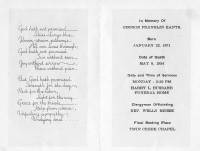 God hath not promised
Skies always blue,
God hath not promised
Sun without rain,
Joy without sorrow
Peace without pain.
But God hath promised
Strength for the day,
Rest for the labor,
Light for the way,
Grace for the trials,
Help from above,
Unfailing sympathy
Undying love.
In Memory Of
GEORGE FRANKLIN
Born
JANUARY 22, 1871
Date of Death
MAY 6, 1954
Date and Time of Services
MONDAY - 2:30 PM
HARRY L. HUBBARD
FUNERAL HOME
Clergyman Officiating
REV. WELLS
Final Resting Place
TWIN CREEK CHAPEL